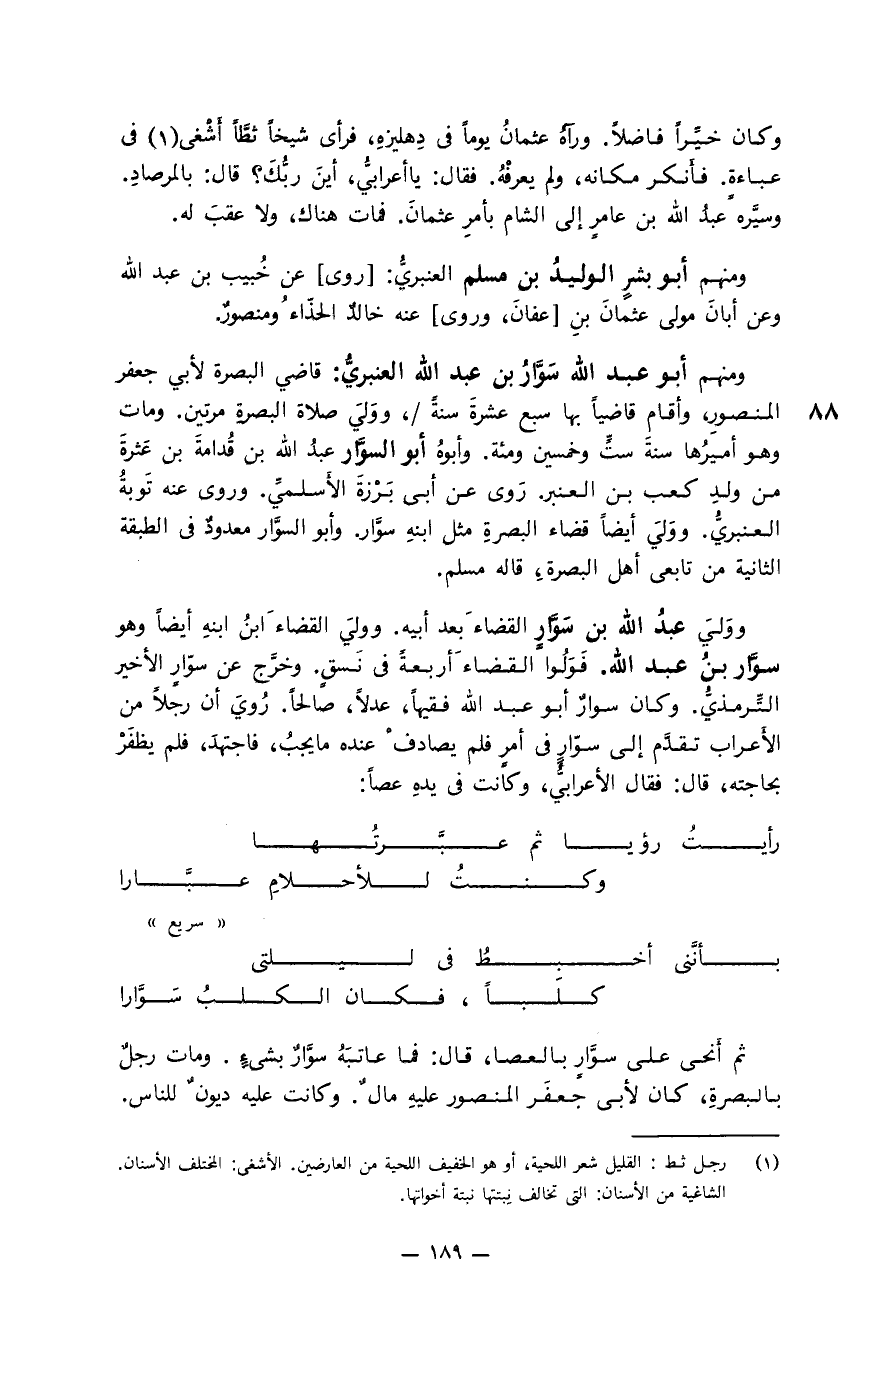 وكان خيِّراً فاضلاً. ورآهُ عثمانُ يوماً فى دِهليزهِ، فرأى شيخاً ثطَّاً أَشْغى(١) فى
عباءةٍ. فأنكر مكانه، ولم يعرفْهُ. فقال: ياأعرابيُّ، أينَ ربُّكَ؟ قال: بالمرصادِ.
وسيَّره عبدُ الله بن عامرٍ إلى الشام بأمرِ عثمانَ. فمات هناك، ولا عقبَ له.
ومنهم أبو بشرٍ الوليدُ بن مسلم العنبريُّ: [روى] عن خُبيب بن عبد الله
وعن أبانَ مولى عثمانَ بنِ [عفانَ، وروى] عنه خالدٌ الحذّاءُ ومنصورٌ.
ومنهم أبو عبد الله سَوَّارُ بن عبد الله العنبريُّ: قاضي البصرة لأبي جعفر
٨٨ المنصورِ، وأقام قاضياً بها سبع عشرةَ سنةً /، ووَليَ صلاة البصرةِ مرتين. ومات
وهو أميرُها سنةَ ستٍّ وخمسين ومئة. وأبوهُ أبو السوَّار عبدُ الله بن قُدامةَ بن عَثرةَ
من ولدِ كعب بن العنبرِ. رَوى عن أبى بَرْزةَ الأَسلميِّ. وروى عنه تَوبةُ
العنبريُّ. ووَليَ أيضاً قضاء البصرةِ مثل ابنهِ سوَّار. وأبو السوَّار معدودٌ فى الطبقة
الثانية من تابعى أهل البصرةِ، قاله مسلم.
ووَليَ عبدُ الله بن سَوَّارٍ القضاءَ بعد أبيه. ووليَ القضاءَ ابنُ ابنهِ أيضاً وهو
سوَّار بنُ عبد الله. فَوَلُوا القضاءَ أربعةً فى نَسقٍ. وخرَّج عن سوّارٍ الأخير
التِّرمذيُّ. وكان سوارٌ أبو عبد الله فقيهاً، عدلاً، صالحاً. رُويَ أن رجلاً من
الأعراب تقدَّم إلى سوّارٍ فى أمرٍ فلم يصادفْ عنده مايجبُ، فاجتهدَ، فلم يظفَرْ
بحاجته، قال: فقال الأعرابيُّ، وكانت فى يدهِ عصاً:
رأيتُ رؤيا ثم عبَّرتُها
وكنتُ للأحلامِ عبَّارا
« سريع »
بأنَّنى أخبِطُ فى ليلتى
كلَباً ، فكان الكلبُ سَوَّارا
ثم أَنحى على سوَّارٍ بالعصا، قال: فما عاتبَهُ سوَّارٌ بشىءٍ . ومات رجلٌ
بالبصرةِ، كان لأبى جعفَر المنصور عليهِ مالٌ. وكانت عليه ديونٌ للناس.
(١) رجل ثط : القليل شعر اللحية، أو هو الخفيف اللحية من العارضين. الأشغى: المختلف الأسنان.
الشاغية من الأسنان: التى تخالف نِبتتها نبتة أخواتها.
— ١٨٩ —